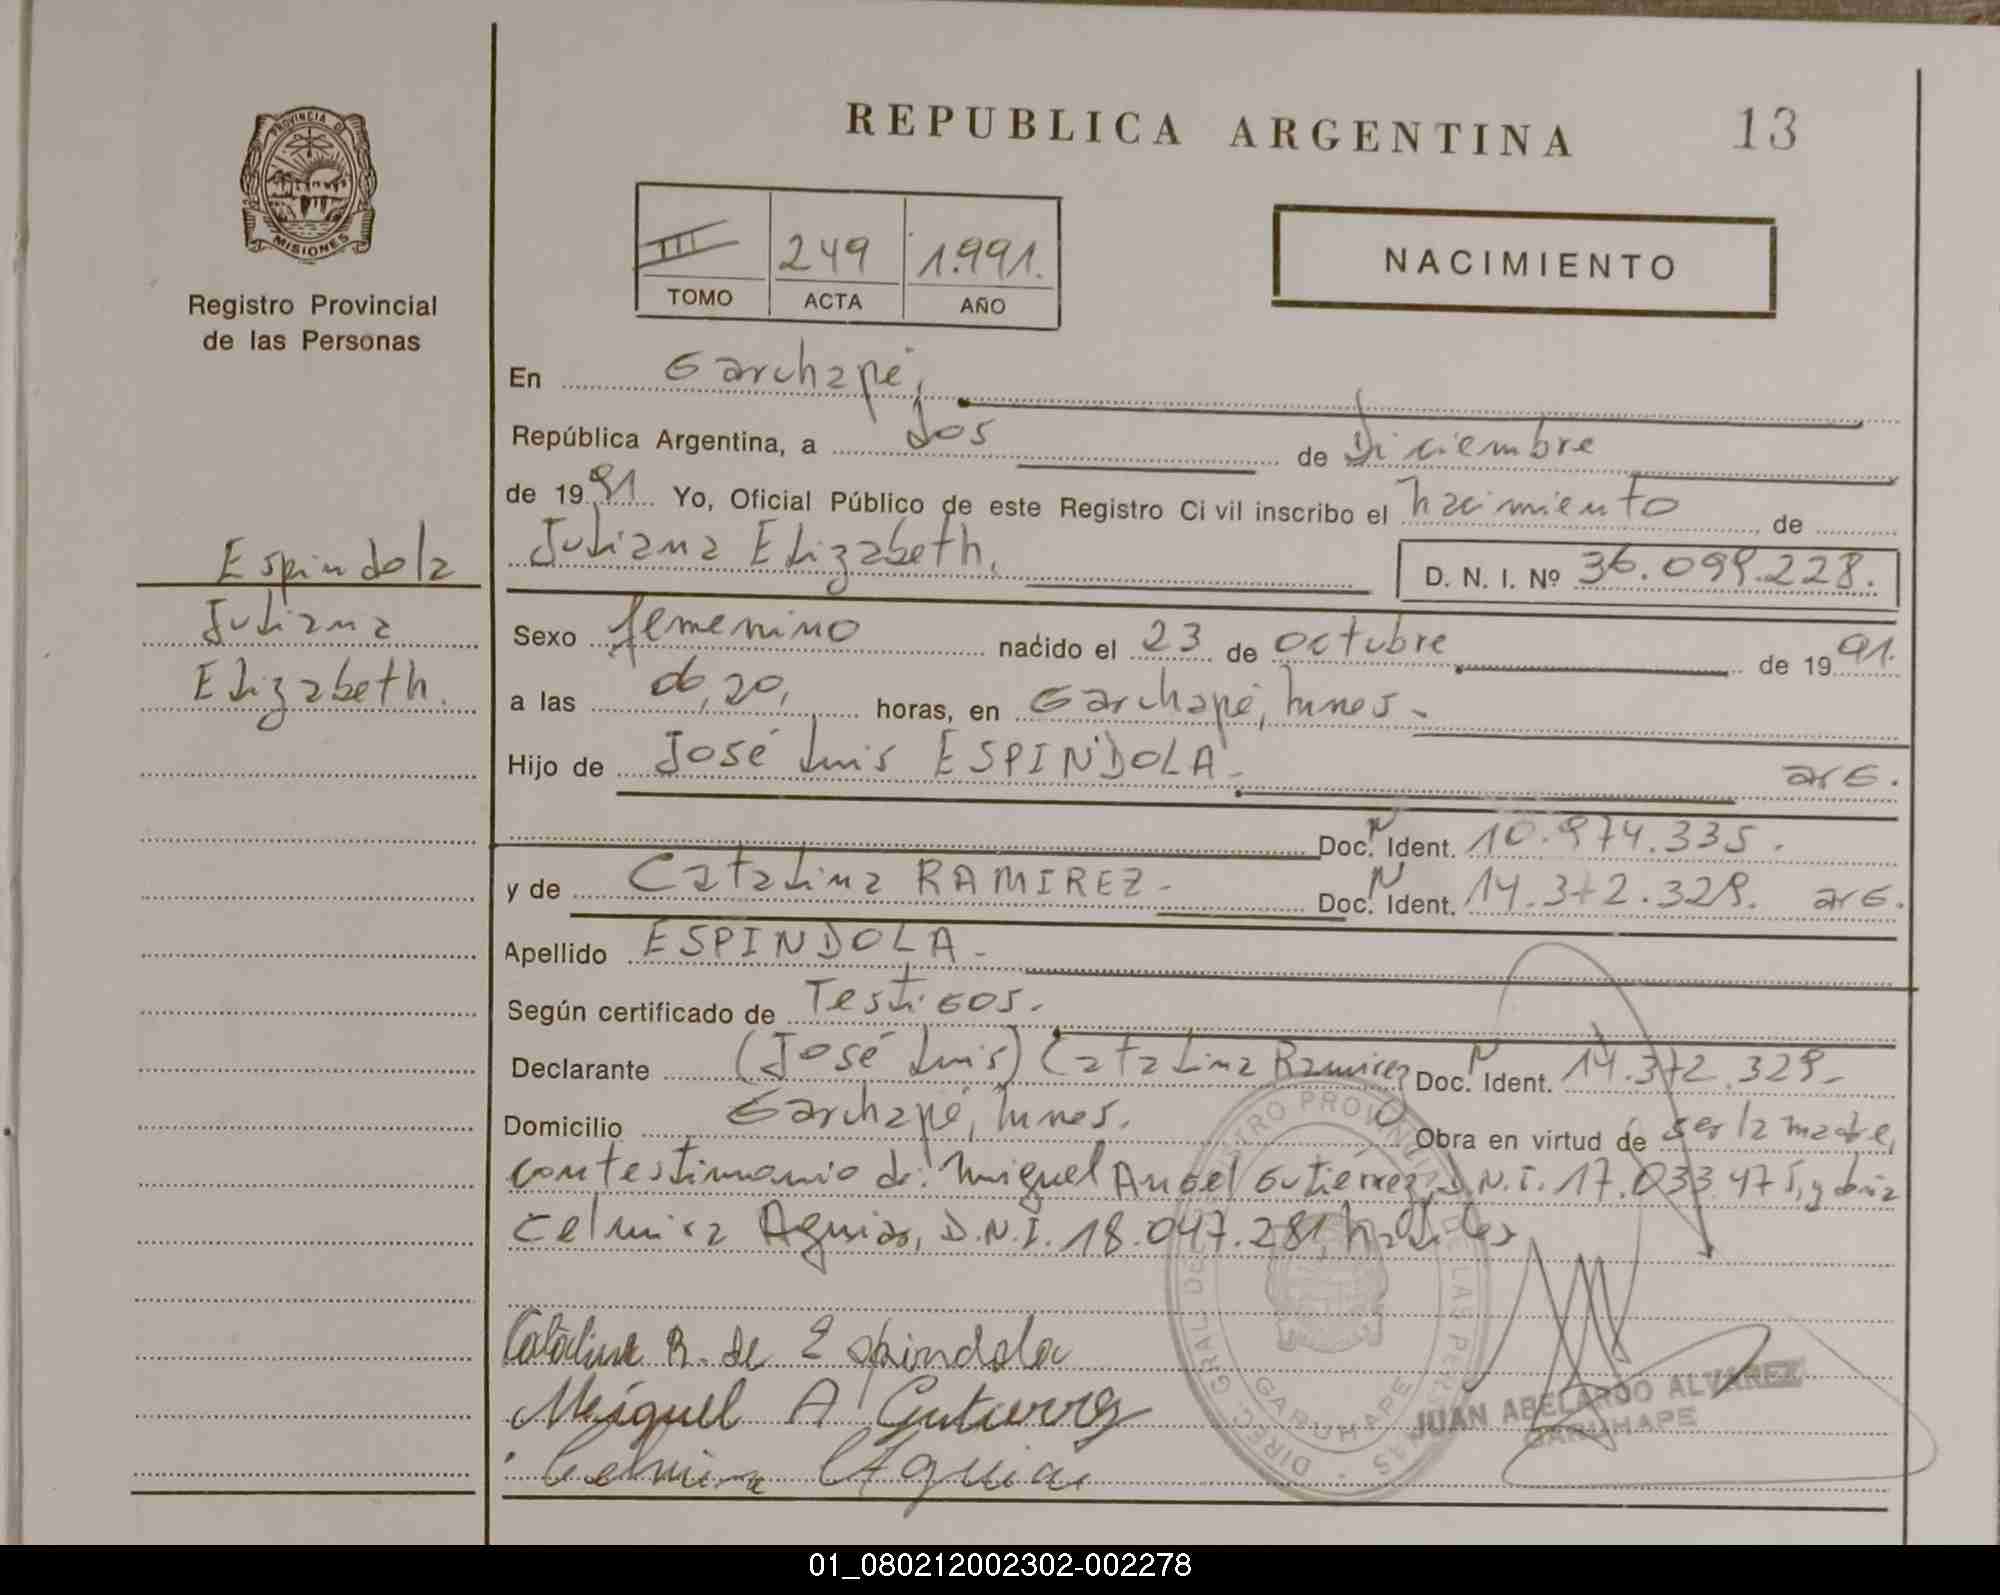 REPUBLICA ARGENTINA
13
PROVINCIA DE
MISIONES
Registro Provincial
de las Personas
III 249 1.991.
TOMO ACTA AÑO
NACIMIENTO
En Garuhapé,
República Argentina, a dos de Diciembre
de 1991 Yo, Oficial Público de este Registro Civil inscribo el nacimiento de
Juliana Elizabeth.
D. N. I. Nº 36.099.228.
Espindola
Juliana
Elizabeth.
Sexo femenino nacido el 23 de octubre de 1991.
a las 06,20, horas, en Garuhapé, lunes.-
Hijo de José Luis ESPINDOLA.- arG.
Doc. N Ident. 10.974.335.
y de Catalina RAMIREZ- Doc. N Ident. 14.372.329. arG.
Apellido ESPINDOLA-
Según certificado de Testigos.-
Declarante (José Luis) Catalina Ramirez Doc. N Ident. 14.372.329.-
Domicilio Garuhapé, lunes. Obra en virtud de ser la madre,
con testimonio de: Miguel Angel Gutiérrez, D.N.I. 17.033.475, y doña
Celmira Aguiar, D.N.I. 18.047.281, hábiles
Catalina R. de Espindola
Meiguel A Gutierrez
Celmira Aguiar
DIREC. GRAL. DE REGISTRO PROVINCIAL DE LAS PERSONAS
GARUHAPE
JUAN ABELARDO ALVAREZ
GARUHAPE
01_080212002302-002278